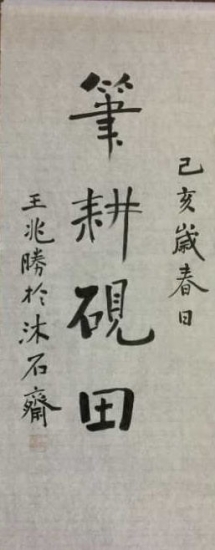 己亥歲春日
筆耕硯田
王兆勝於沐石齋